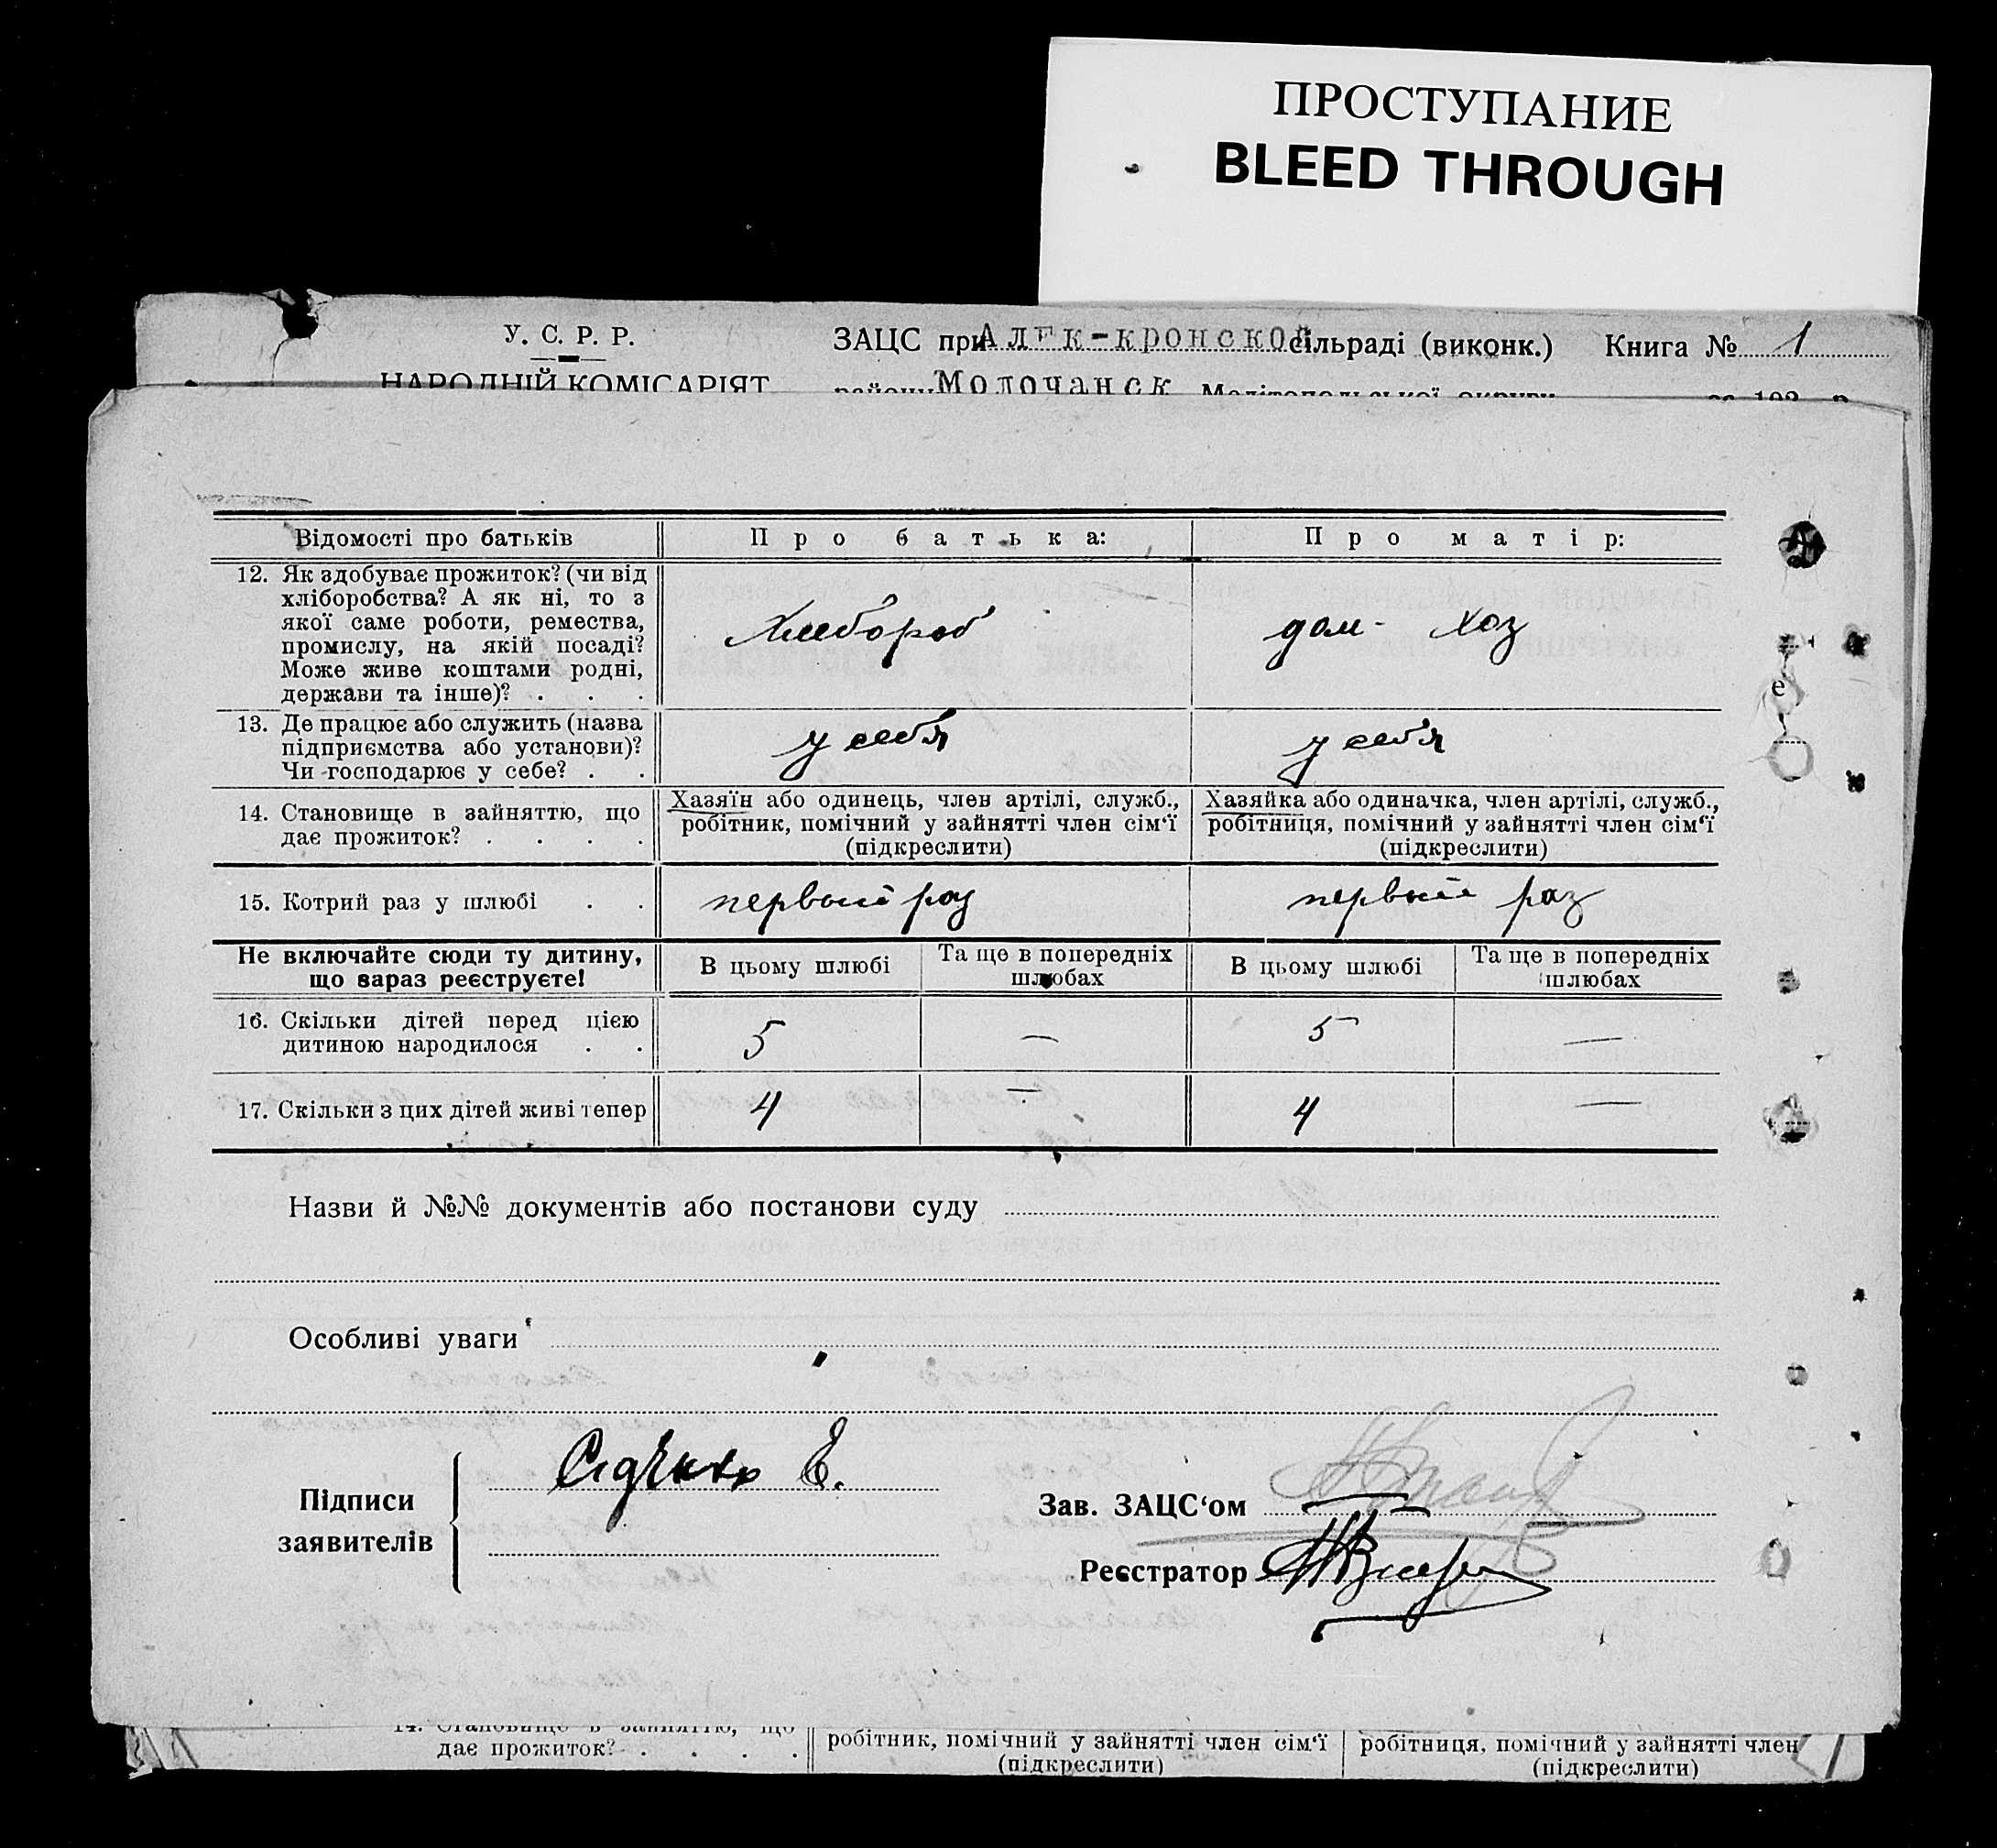 ПРОСТУПАНИЕ
BLEED THROUGH
У. С. Р. Р.
ЗАЦС при Алек-кронской сільраді (виконк.) Книга № 1
НАРОДНІЙ КОМІСАРІЯТ
району Молочанск Мелітопольської округи за 192 р.
Відомості про батьків
Про батька:
Про матір:
12. Як здобуває прожиток? (чи від
хліборобства? А як ні, то з
якої саме роботи, ремества,
промислу, на якій посаді?
Може живе коштами родні,
держави та інше)? . . .
Хлебороб
дом- хоз
13. Де працює або служить (назва
підприємства або установи)?
Чи господарює у себе? . .
у себя
у себя
14. Становище в зайняттю, що
дає прожиток? . . . .
Хазяїн або одинець, член артілі, служб.,
робітник, помічний у зайнятті член сім'ї
(підкреслити)
Хазяйка або одиначка, член артілі, служб.,
робітниця, помічний у зайнятті член сім'ї
(підкреслити)
15. Котрий раз у шлюбі . .
первый раз
первый раз
Не включайте сюди ту дитину,
що зараз реєструєте!
В цьому шлюбі
Та ще в попередніх
шлюбах
В цьому шлюбі
Та ще в попередніх
шлюбах
16. Скільки дітей перед цією
дитиною народилося . .
5
—
5
—
17. Скільки з цих дітей живі тепер
4
—
4
—
Назви й №№ документів або постанови суду
Особливі уваги
Підписи
заявителів
Е.
Зав. ЗАЦС'ом
Реєстратор
14. Становище в зайняттю, що
дає прожиток? . . . .
робітник, помічний у зайнятті член сім'ї
(підкреслити)
робітниця, помічний у зайнятті член
(підкреслити)